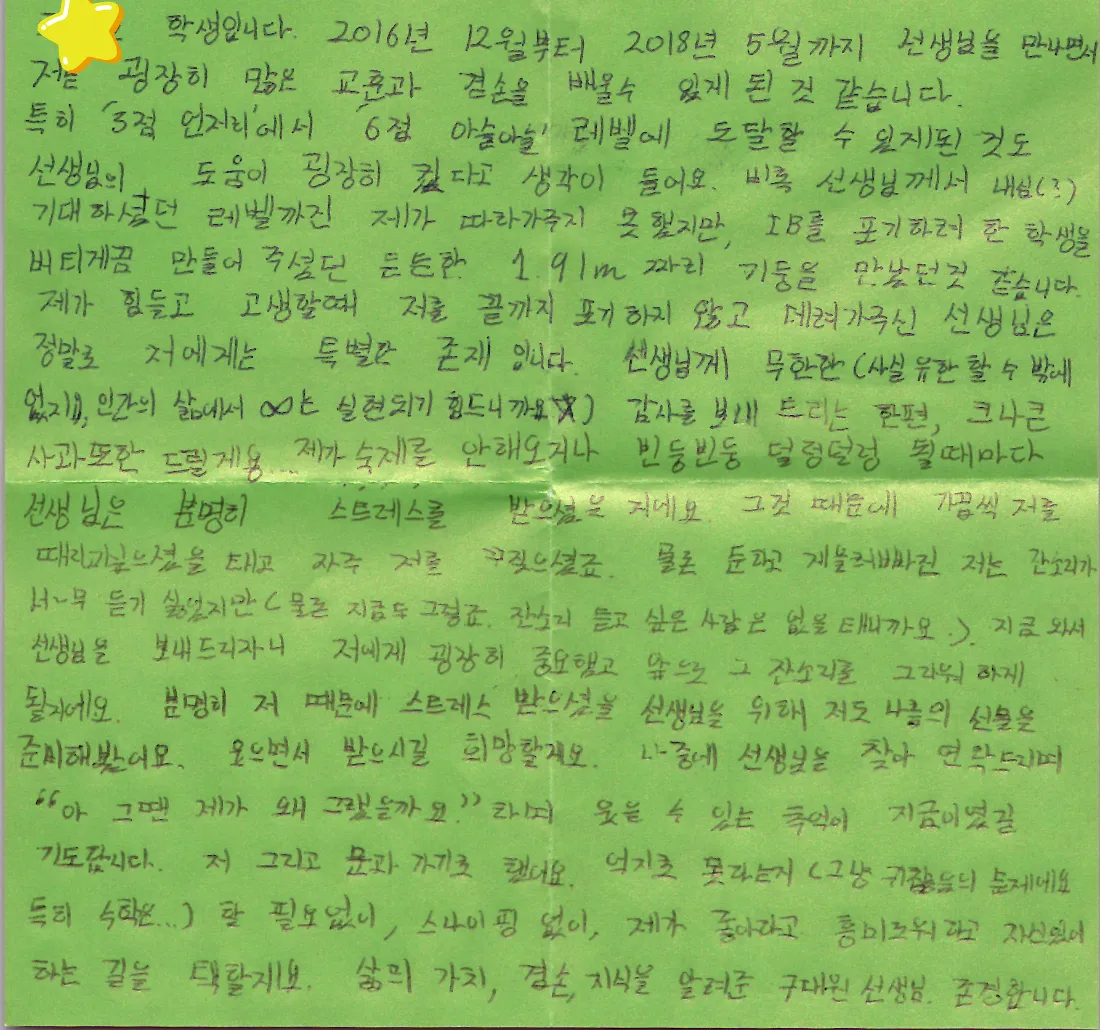 학생입니다. 2016년 12월부터 2018년 5월까지 선생님을 만나면서
저는 굉장히 많은 교훈과 겸손을 배울수 있게 된 것 같습니다.
특히 '3점 언저리'에서 '6점 아슬아슬' 레벨에 도달할 수 있게된 것도
선생님의 도움이 굉장히 컸다고 생각이 들어요. 비록 선생님께서 내심(?)
기대하셨던 레벨까진 제가 따라가주지 못했지만, IB를 포기하려 한 학생을
버티게끔 만들어 주셨던 든든한 1.91m 짜리 기둥을 만났던것 같습니다.
제가 힘들고 고생할때 저를 끝까지 포기하지 않고 데려가주신 선생님은
정말로 저에게는 특별한 존재입니다. 선생님께 무한한 (사실 유한할 수 밖에
없지요, 인간의 삶에서 ∞는 실현되기 힘드니까요) 감사를 보내 드리는 한편, 크나큰
사과또한 드릴게용... 제가 숙제를 안해오거나 빈둥빈둥 덜렁덜렁 될때마다
선생님은 분명히 스트레스를 받으셨을 거에요. 그것 때문에 가끔씩 저를
때리고싶으셨을 테고 자주 저를 꾸짖으셨죠. 물론 둔하고 게을러빠진 저는 잔소리가
너~무 듣기 싫었지만 (물론 지금도 그렇죠. 잔소리 듣고 싶은 사람은 없을 테니까요.). 지금 와서
선생님을 보내드리자니 저에게 굉장히 중요했고 앞으로 그 잔소리를 그리워 하게
될거에요. 분명히 저 때문에 스트레스 받으셨을 선생님을 위해 저도 나름의 선물을
준비해봤어요. 웃으면서 받으시길 희망할게요. 나중에 선생님을 찾아 연락드리며
"아 그땐 제가 왜 그랬을까요?" 라며 웃을 수 있는 추억이 지금이였길
기도합니다. 저 그리고 문과 가기로 했어요. 억지로 못하는거 (그냥 귀찮음의 문제에요
특히 수학은...) 할 필요없이, 스나이핑 없이, 제가 좋아하고 흥미로워하고 자신있어
하는 길을 택할거에요. 삶의 가치, 겸손, 지식을 알려준 구대원 선생님. 존경합니다.